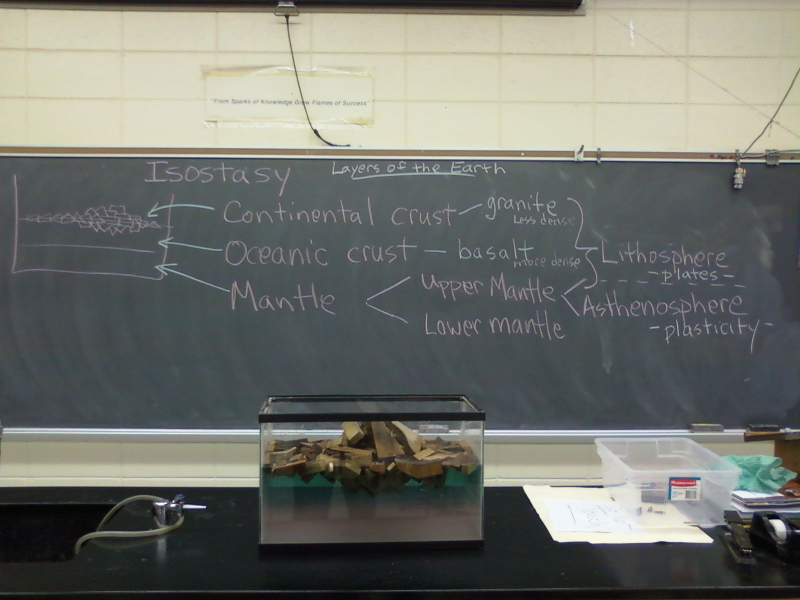 "From Sparks of Knowledge Grow Flames of Success"
Isostasy
Layers of the Earth
Continental crust – granite
Less dense
Oceanic crust – basalt
more dense
Lithosphere
-plates-
Mantle
Upper Mantle
Lower mantle
Asthenosphere
-plasticity-